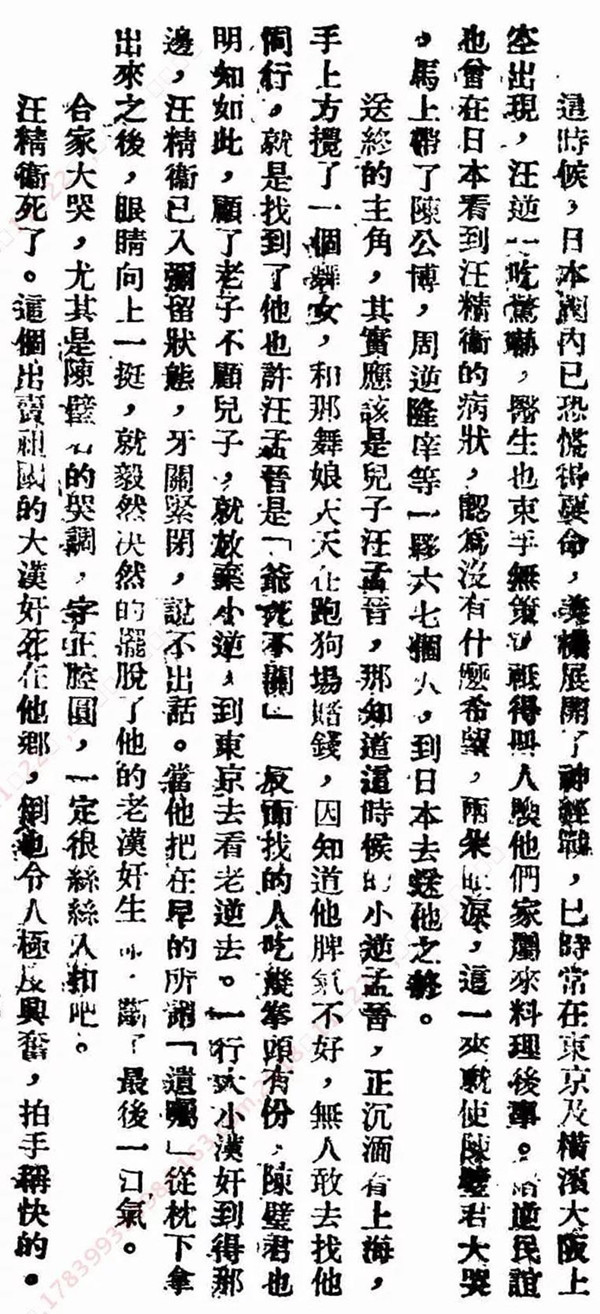 這時候，日本國內已恐慌得要命，美機展開了神經戰，已時常在東京及橫濱大阪上
空出現，汪逆一吃驚嚇，醫生也束手無策，祇得叫人喚他們家屬來料理後事。褚逆民誼
也曾在日本看到汪精衛的病狀，認為沒有什麼希望，兩朵眼淚，這一來就使陳璧君大哭
，馬上帶了陳公博，周逆隆庠等一夥六七個人，到日本去送他之終。
送終的主角，其實應該是兒子汪孟晉，那知道這時候的小逆孟晉，正沉湎着上海，
手上方攪了一個舞女，和那舞娘天天在跑狗場賭錢，因知道他脾氣不好，無人敢去找他
同行，就是找到了他也許汪孟晉是「爺死不關」 反而找的人吃幾拳頭有份，陳璧君也
明知如此，顧了老子不顧兒子，就放棄小逆，到東京去看老逆去。一行大小漢奸到得那
邊，汪精衛已入彌留狀態，牙關緊閉，說不出話。當他把在早的所謂「遺囑」從枕下拿
出來之後，眼睛向上一挺，就毅然决然的擺脫了他的老漢奸生 斷了最後一口氣。
合家大哭，尤其是陳璧君的哭調，字正腔圓，一定很絲絲入扣吧。
汪精衛死了。這個出賣祖國的大漢奸死在他鄉，倒也令人極度興奮，拍手稱快的。